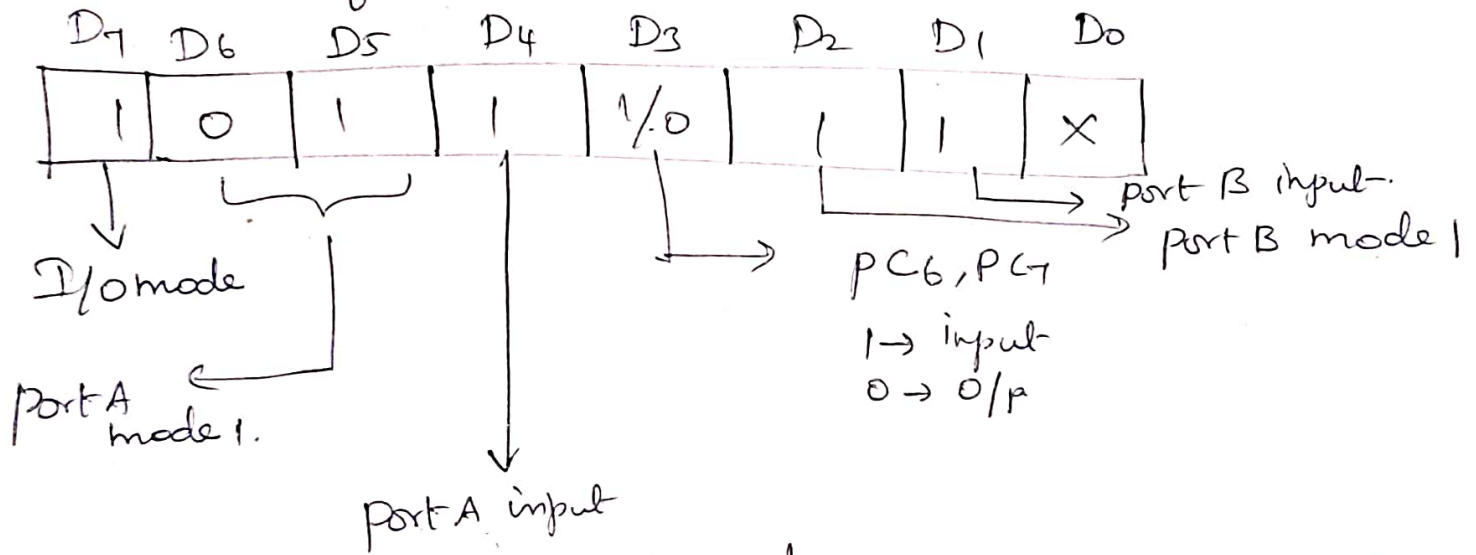 D7 D6 D5 D4 D3 D2 D1 D0
1 0 1 1 1/0 1 1 X
port B input.
port B mode 1
I/O mode
PC6, PC7
1→ input
0→ O/p
port A
mode 1.
port A input